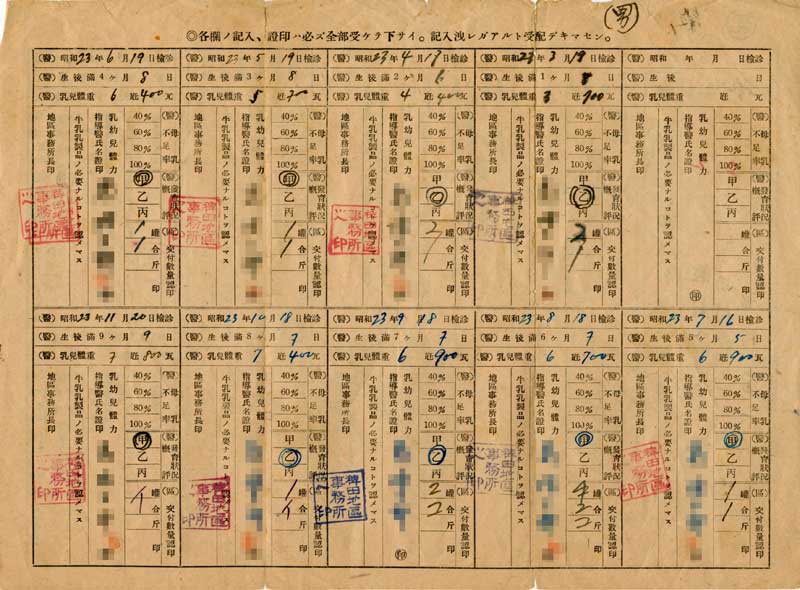 男
◎各欄ノ記入、證印ハ必ズ全部受ケテ下サイ。記入洩レガアルト受配デキマセン。
(醫)昭和 年 月 日檢診
(醫)生後 年 ヶ月 日
(醫)乳兒體重 瓩 瓦
(醫)母乳不足率 (醫)發育狀況概評 (區)交付數量認印
40% 60% 80% 100% 甲 乙 丙 罐 合 斤 印
乳幼兒體力指導醫氏名證印
牛乳乳製品ノ必要ナルコトヲ認メマス
地區事務所長印
(醫)昭和23年3月19日檢診
(醫)生後滿1ヶ月8日
(醫)乳兒體重3瓩900瓦
(醫)母乳不足率 (醫)發育狀況概評 (區)交付數量認印
40% 60% 80% 100% 甲 乙 丙 2罐 1合 斤 印
乳幼兒體力指導醫氏名證印
牛乳乳製品ノ必要ナルコトヲ認メマス
地區事務所長印
稗田地區事務所印
(醫)昭和23年4月17日檢診
(醫)生後滿2ヶ月6日
(醫)乳兒體重4瓩400瓦
(醫)母乳不足率 (醫)發育狀況概評 (區)交付數量認印
40% 60% 80% 100% 甲 乙 丙 2罐 1合 斤 印
乳幼兒體力指導醫氏名證印
牛乳乳製品ノ必要ナルコトヲ認メマス
地區事務所長印
稗田地區事務所印
(醫)昭和23年5月19日檢診
(醫)生後滿3ヶ月8日
(醫)乳兒體重5瓩700瓦
(醫)母乳不足率 (醫)發育狀況概評 (區)交付數量認印
40% 60% 80% 100% 甲 乙 丙 1罐 1合 斤 印
乳幼兒體力指導醫氏名證印
牛乳乳製品ノ必要ナルコトヲ認メマス
地區事務所長印
稗田地區事務所印
(醫)昭和23年6月19日檢診
(醫)生後滿4ヶ月8日
(醫)乳兒體重6瓩400瓦
(醫)母乳不足率 (醫)發育狀況概評 (區)交付數量認印
40% 60% 80% 100% 甲 乙 丙 1罐 1合 斤 印
乳幼兒體力指導醫氏名證印
牛乳乳製品ノ必要ナルコトヲ認メマス
地區事務所長印
稗田地區事務所印
(醫)昭和23年7月16日檢診
(醫)生後滿5ヶ月5日
(醫)乳兒體重6瓩900瓦
(醫)母乳不足率 (醫)發育狀況概評 (區)交付數量認印
40% 60% 80% 100% 甲 乙 丙 1罐 1合 斤 印
乳幼兒體力指導醫氏名證印
牛乳乳製品ノ必要ナルコトヲ認メマス
地區事務所長印
稗田地區事務所印
(醫)昭和23年8月18日檢診
(醫)生後滿6ヶ月7日
(醫)乳兒體重6瓩700瓦
(醫)母乳不足率 (醫)發育狀況概評 (區)交付數量認印
40% 60% 80% 100% 甲 乙 丙 罐 合 斤 印
乳幼兒體力指導醫氏名證印
牛乳乳製品ノ必要ナルコトヲ認メマス
地區事務所長印
稗田地區事務所印
(醫)昭和23年9月18日檢診
(醫)生後滿7ヶ月7日
(醫)乳兒體重6瓩900瓦
(醫)母乳不足率 (醫)發育狀況概評 (區)交付數量認印
40% 60% 80% 100% 甲 乙 丙 2罐 合 斤 印
乳幼兒體力指導醫氏名證印
牛乳乳製品ノ必要ナルコトヲ認メマス
地區事務所長印
稗田地區事務所印
(醫)昭和23年10月18日檢診
(醫)生後滿8ヶ月7日
(醫)乳兒體重7瓩400瓦
(醫)母乳不足率 (醫)發育狀況概評 (區)交付數量認印
40% 60% 80% 100% 甲 乙 丙 1罐 イ合 斤 印
乳幼兒體力指導醫氏名證印
牛乳乳製品ノ必要ナルコトヲ認メマス
地區事務所長印
稗田地區事務所印
(醫)昭和23年11月20日檢診
(醫)生後滿9ヶ月9日
(醫)乳兒體重7瓩800瓦
(醫)母乳不足率 (醫)發育狀況概評 (區)交付數量認印
40% 60% 80% 100% 甲 乙 丙 罐 イ合 斤 印
乳幼兒體力指導醫氏名證印
牛乳乳製品ノ必要ナルコトヲ認メマス
地區事務所長印
稗田地區事務所印